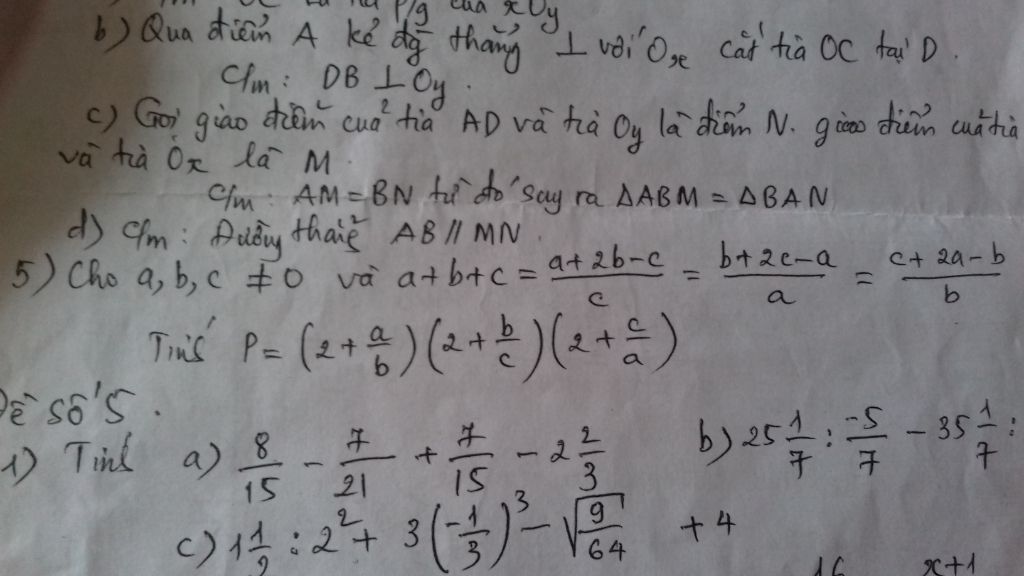 p/g của xOy
b) Qua điểm A kẻ đg thẳng ⊥ với Ox cắt tia OC tại D.
C/m: DB ⊥ Oy.
c) Gọi giao điểm của tia AD và tia Oy là điểm N. giao điểm của tia
và tia Ox là M.
C/m: AM = BN từ đó suy ra ΔABM = ΔBAN
d) C/m: Đường thẳng AB // MN.
5) Cho a, b, c ≠ 0 và a+b+c = (a+2b-c)/c = (b+2c-a)/a = (c+2a-b)/b
Tính P = (2 + a/b)(2 + b/c)(2 + c/a)
Đề số 5.
1) Tính a) 8/15 - 7/21 + 7/15 - 2 2/3 b) 25 1/7 : -5/7 - 35 1/7 :
c) 1 1/2 : 2² + 3(-1/3)³ - √(9/64) + 4
16 x+1